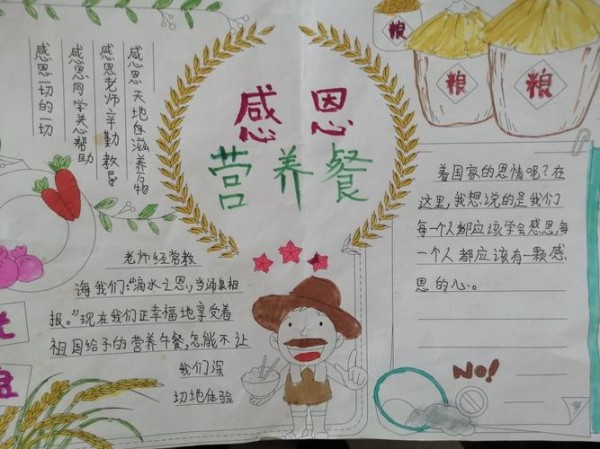 感恩
营养餐
感恩天地自滋养万物
感恩老师辛勤教导
感恩同学关心帮助
感恩一切的一切
粮
粮
粮
老师经常教
诲我们:“滴水之恩,当涌泉相
报。”现在我们正幸福地享受着
祖国给予的营养午餐,怎能不让
我们深
切地体验
着国家的恩情呢?在
这里,我想说的是我们
每个人都应该学会感恩,每
一个人都应该有一颗感
恩的心。
NO!